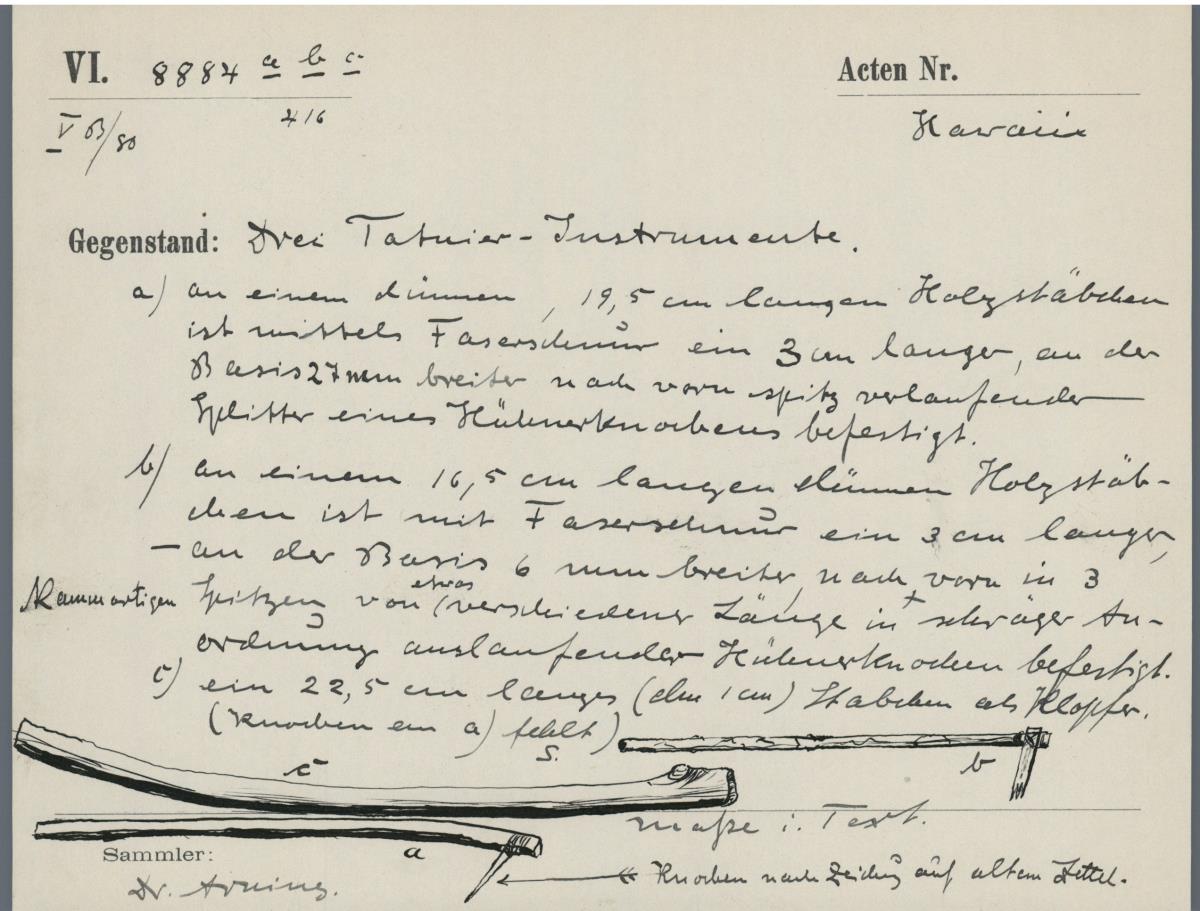 VI. 8884 a b c
Acten Nr.
V B/80
416
Hawaii
Gegenstand: Drei Tatuier-Instrumente.
a) an einem dünnen, 19,5 cm langen Holzstäbchen
ist mittels Faserschnur ein 3 cm langer, an der
Basis 27 mm breiter nach vorn spitz verlaufender
Splitter eines Hühnerknochens befestigt.
b) an einem 16,5 cm langen dünnen Holzstäb-
chen ist mit Faserschnur ein 3 cm langer,
- an der Basis 6 mm breiter, nach vorn in 3
kammartigen Spitzen von etwas verschiedener Länge in + schräger An-
ordnung auslaufender Hühnerknochen befestigt.
c) ein 22,5 cm langes (dm 1 cm) Stabchen als Klopfer.
(Knochen an a) fehlt)
S.
c
b
Maße i. Text.
Sammler:
a
Dr. Arning.
Knochen nach Zeichng auf altem Zettel.